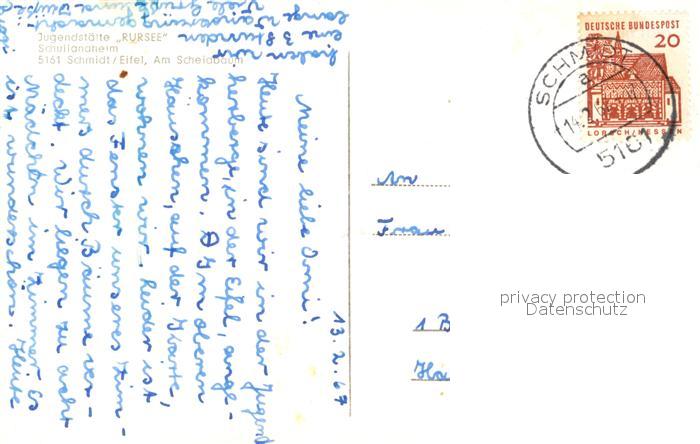 Jugendstätte „RURSEE"
Schullandheim
5161 Schmidt/Eifel, Am Scheidbaum
13.2.67
Meine liebe Omi!
Heute sind wir in der Jugend
herberge, in der Eifel, ange-
kommen. Im oberen
Häuschen, auf der Karte,
wohnen wir. Leider ist
das Fenster unseres Zim-
mers durch Bäume ver-
deckt. Wir liegen zu acht
Mädchen im Zimmer. Es
ist wunderschön. Heute
haben wir
eine 3 Stunden
lange Wanderung gemacht.
Viele Grüße
DEUTSCHE BUNDESPOST
20
LORSCH/HESSEN
SCHMIDT
a
5161
An
Frau
1 B
privacy protection
Datenschutz